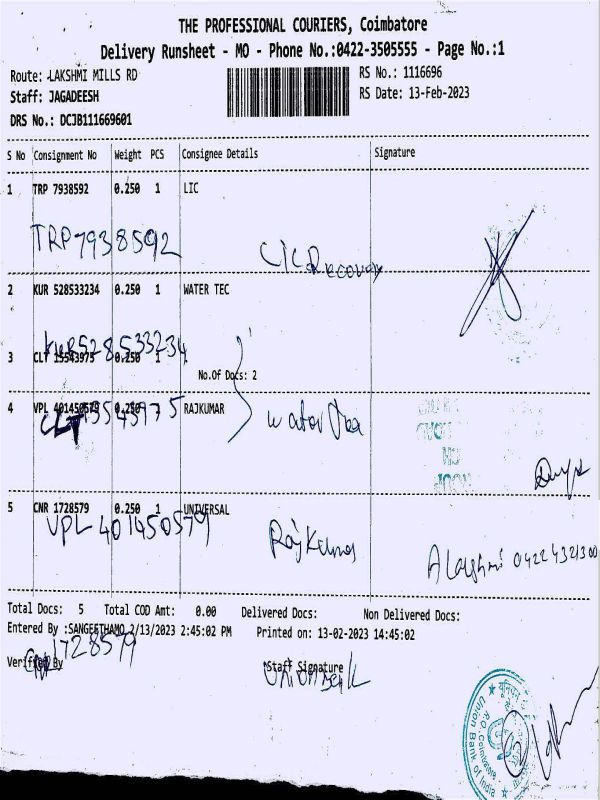 THE PROFESSIONAL COURIERS, Coimbatore
Delivery Runsheet - MO - Phone No.:0422-3505555 - Page No.:1
Route: LAKSHMI MILLS RD
RS No.: 1116696
Staff: JAGADEESH
RS Date: 13-Feb-2023
DRS No.: DCJB111669601
S No Consignment No Weight PCS Consignee Details Signature
1 TRP 7938592 0.250 1 LIC
TRP7938592
LIC Recovery
2 KUR 528533234 0.250 1 WATER TEC
KUR528533234
3 CLT 15543975 0.250 1
No.Of Docs: 2
4 VPL 401450579 0.250 1 RAJKUMAR
CLT15543975
5 CNR 1728579 0.250 1 UNIVERSAL
VPL 401450579
RajKumar
0422 4321300
Total Docs: 5 Total COD Amt: 0.00 Delivered Docs: Non Delivered Docs:
Entered By :SANGEETHAMO 2/13/2023 2:45:02 PM Printed on: 13-02-2023 14:45:02
1728579
Verified By Staff Signature
Union Bank of India